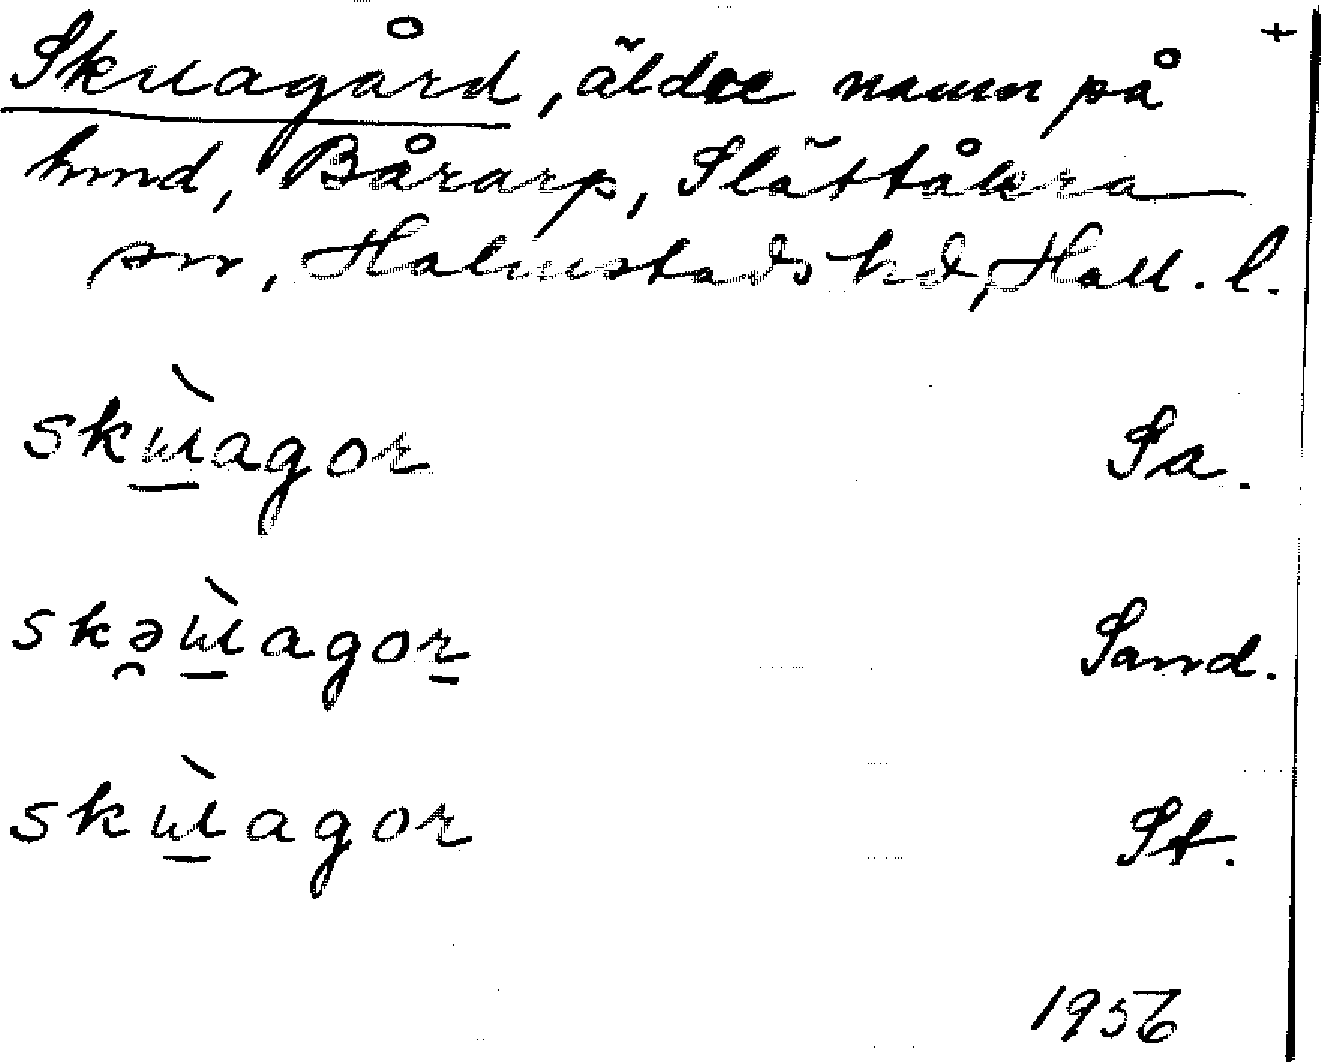 +
Skuagård, äldre namn på
hmd, Bårarp, Slättåkra
sn, Halmstads hd, Hall. l.
skɯ̠̀agor Sa.
skə̯ɯ̠̀ago̱r Sand.
skɯ̠̀agor St.
1956